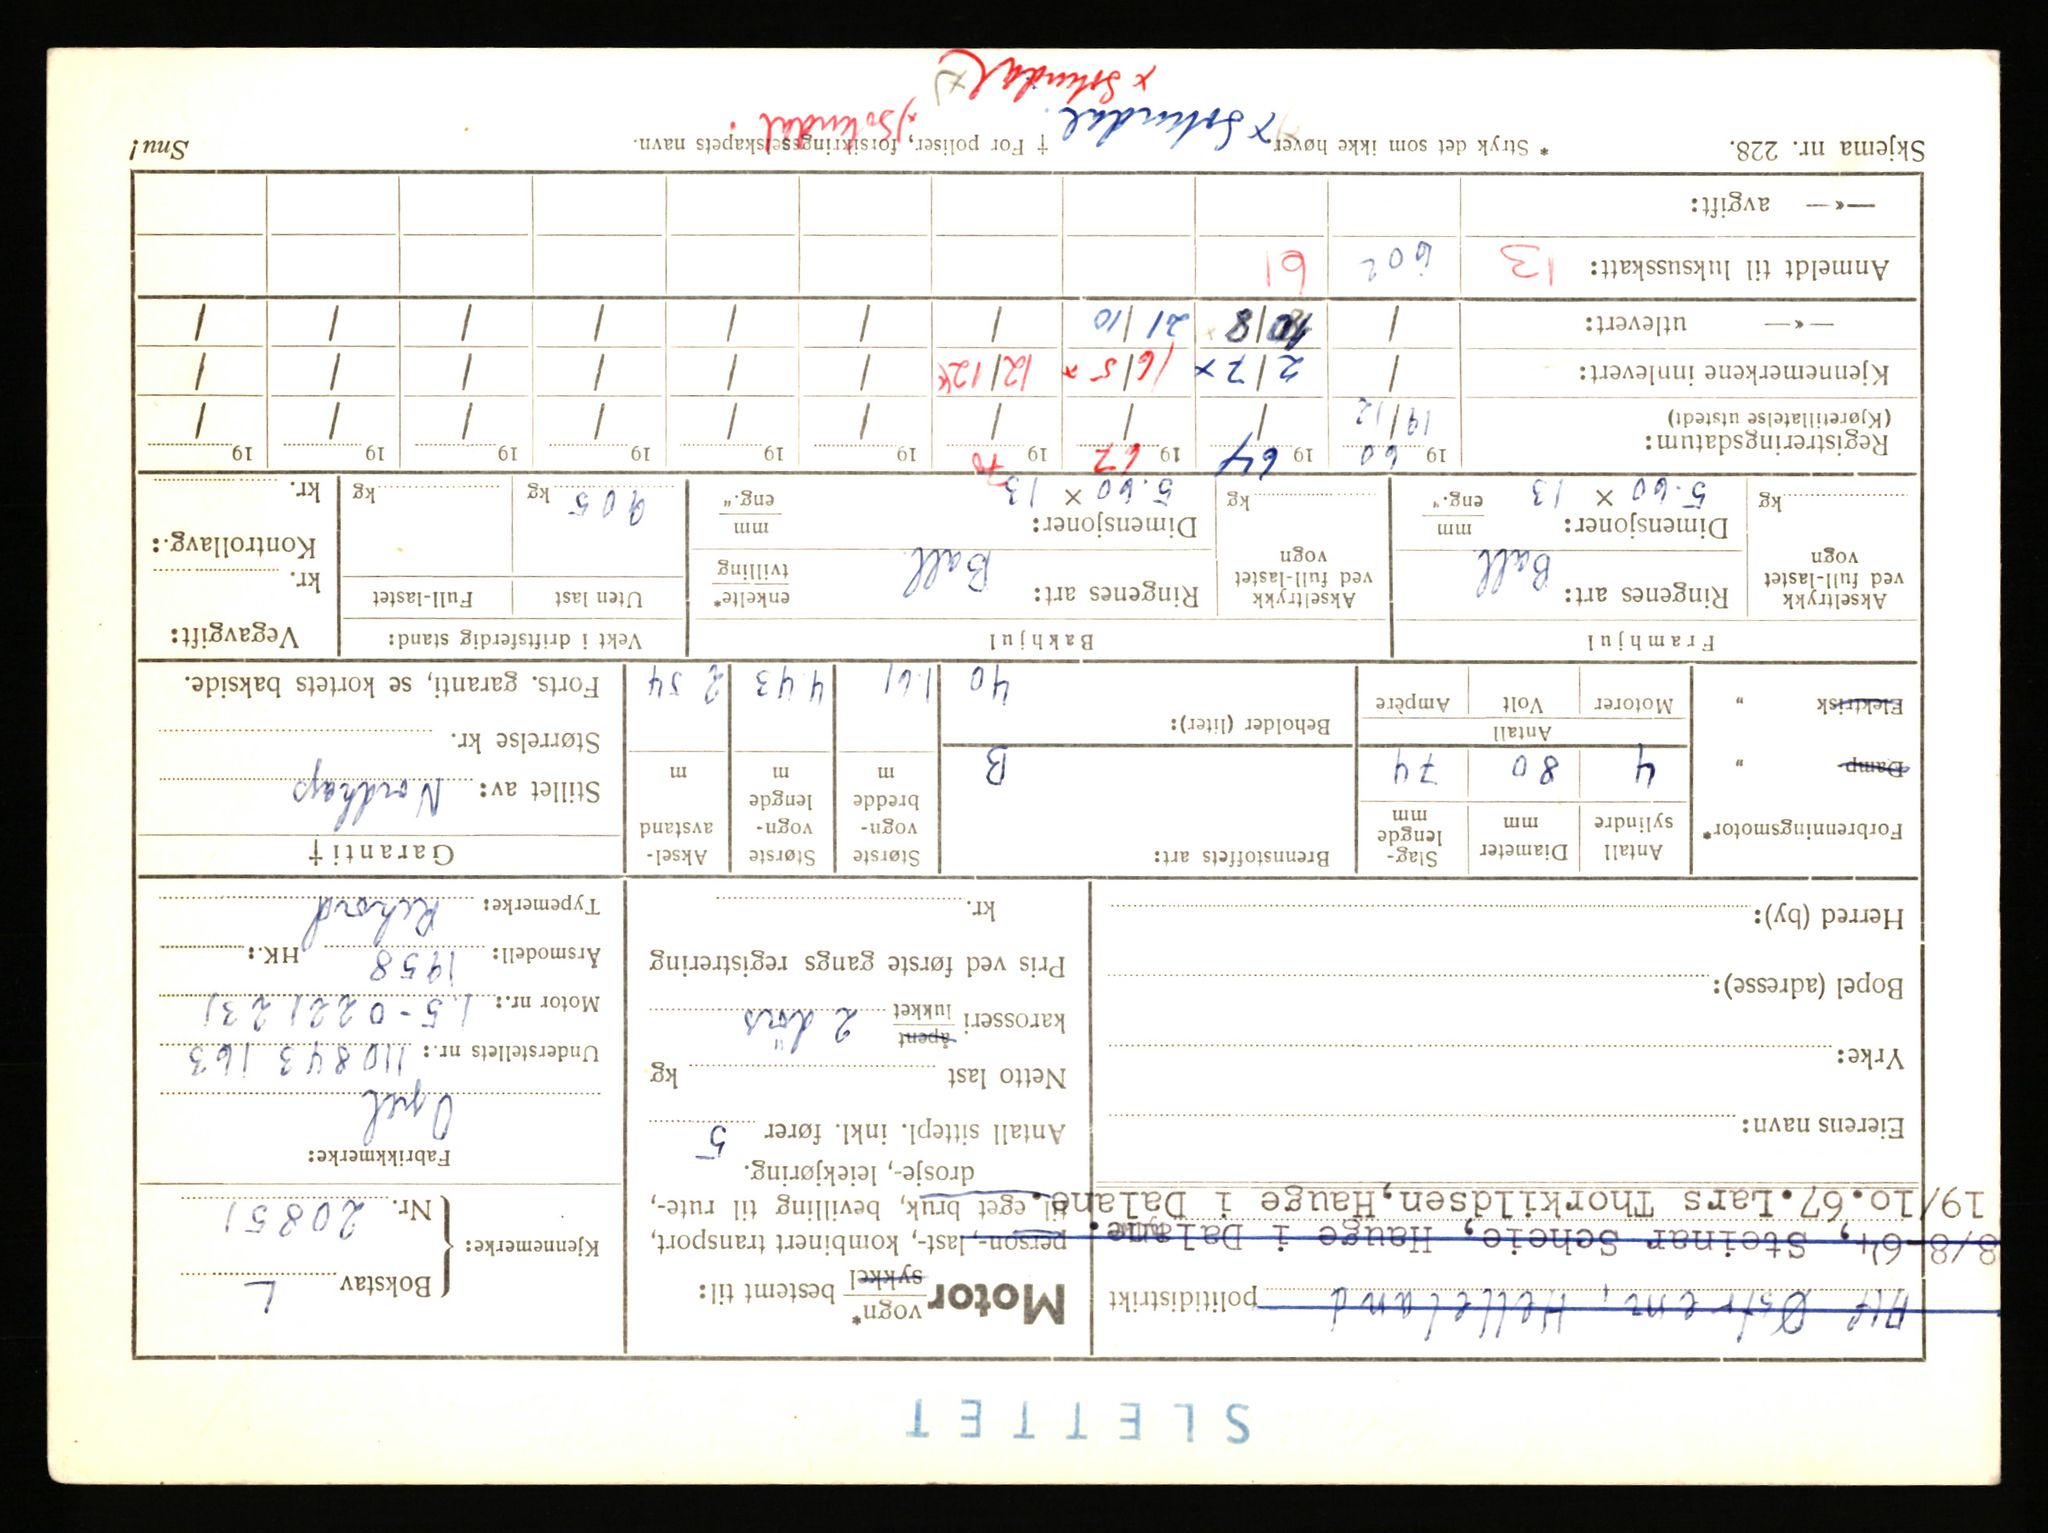 SLETTET
Alf Østrem, Helleland politidistrikt
8/8-64, Steinar Scheie, Hauge i Dalane.
19/10.67.Lars Thorkildsen,Hauge i Dalane.
Eierens navn:
Yrke:
Bopel (adresse):
Herred (by):
Motor vogn* sykkel bestemt til:
person-, last-, kombinert transport,
til eget bruk, bevilling til rute-,
drosje-, leiekjøring.
Antall sittepl. inkl. fører 5
Netto last kg
karosseri åpent lukket 2 dörs
Pris ved første gangs registrering
kr.
Kjennemerke: Bokstav L
Nr. 20851
Fabrikkmerke:
Opel
Understellets nr.: 110843163
Motor nr.: 1.5-0221231
Årsmodell: 1958 HK.:
Typemerke: Rekord
Forbrenningsmotor*
Damp "
Elektrisk "
Antall sylindre 4
Diameter mm 80
Slag-lengde mm 74
Antall
Motorer Volt Ampère
Brennstoffets art: B
Beholder (liter): 40
Største vogn-bredde m 1.61
Største vogn-lengde m 4.43
Aksel-avstand m 2.54
Garanti†
Stillet av: Nordkap
Størrelse kr.
Forts. garanti, se kortets bakside.
Framhjul
Akseltrykk ved full-lastet vogn kg
Ringenes art: Ball
Dimensjoner: 5.60 × 13 mm eng."
Bakhjul
Akseltrykk ved full-lastet vogn kg
Ringenes art: Ball enkelte* tvilling
Dimensjoner: 5.60 × 13 mm eng."
Vekt i driftsferdig stand:
Uten last Full-lastet
905 kg kg
Vegavgift:
kr.
Kontrollavg.:
kr.
Registreringsdatum: 1960 1964 1967 1970 19 19 19 19 19 19
(Kjøretillatelse utstedt) 19/12 / / / / / / / / /
Kjennemerkene innlevert: / 2/7 x 16/5 x 12/12 x / / / / / /
—«— utlevert: / 10/8 21/10 / / / / / / /
Anmeldt til luksusskatt: 13 602 61
—«— avgift:
Skjema nr. 228. * Stryk det som ikke høver. † For poliser, forsikringsselskapets navn. Snu!
x Sokndal. x) Sokndal.
x Sokndal x)